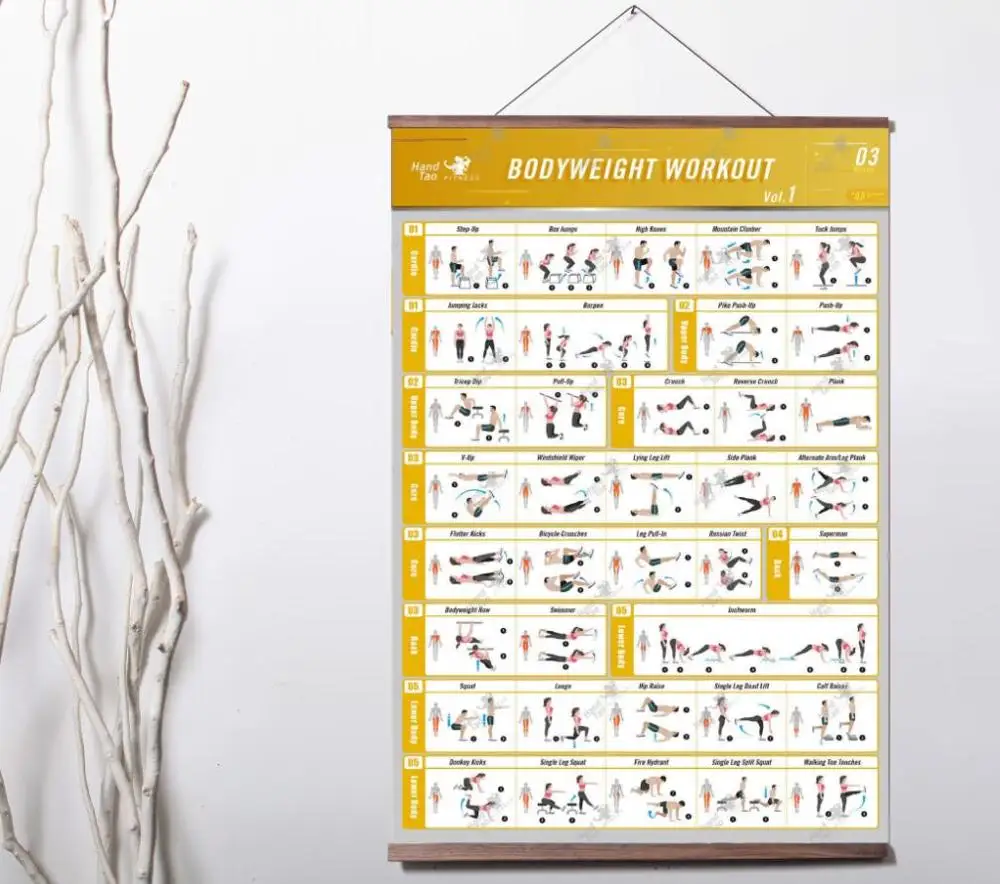 Hand
Tao
FITNESS
BODYWEIGHT WORKOUT
Vol.1
03
01
Cardio
Step-Up
Box Jumps
High Knees
Mountain Climber
Tuck Jumps
01
Cardio
Jumping Jacks
Burpee
02
Upper Body
Pike Push-Up
Push-Up
02
Upper Body
Tricep Dip
Pull-Up
03
Core
Crunch
Reverse Crunch
Plank
03
Core
V-Up
Windshield Wiper
Lying Leg Lift
Side Plank
Alternate Arm/Leg Plank
03
Core
Flutter Kicks
Bicycle Crunches
Leg Pull-In
Russian Twist
04
Back
Superman
03
Back
Bodyweight Row
Swimmer
05
Lower Body
Inchworm
05
Lower Body
Squat
Lunge
Hip Raise
Single Leg Dead Lift
Calf Raises
05
Lower Body
Donkey Kicks
Single Leg Squat
Fire Hydrant
Single Leg Split Squat
Walking Toe Touches